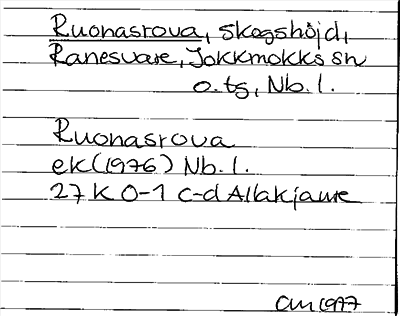 Ruonasrova, skogshöjd,
Ranesvare, Jokkmokks sn
o. tg, Nb. l.
Ruonasrova
ek (1976) Nb. l.
27 K 0-1 c-d Allakjaure
CM 1977